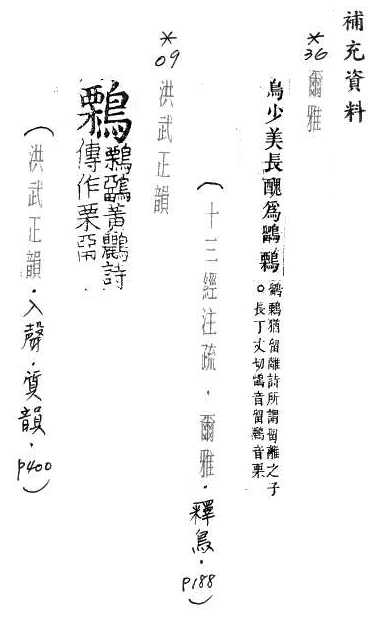 補充資料
*36 爾雅
鳥少美長醜爲鶹鷅
鶹鷅猶留離詩所謂留離之子
。長丁丈切鶹音留鷅音栗
(十三經注疏．爾雅．釋鳥．P188)
*09 洪武正韻
鷅
鷅鶹黃鸝詩
傳作栗畱
(洪武正韻．入聲．質韻．p400)